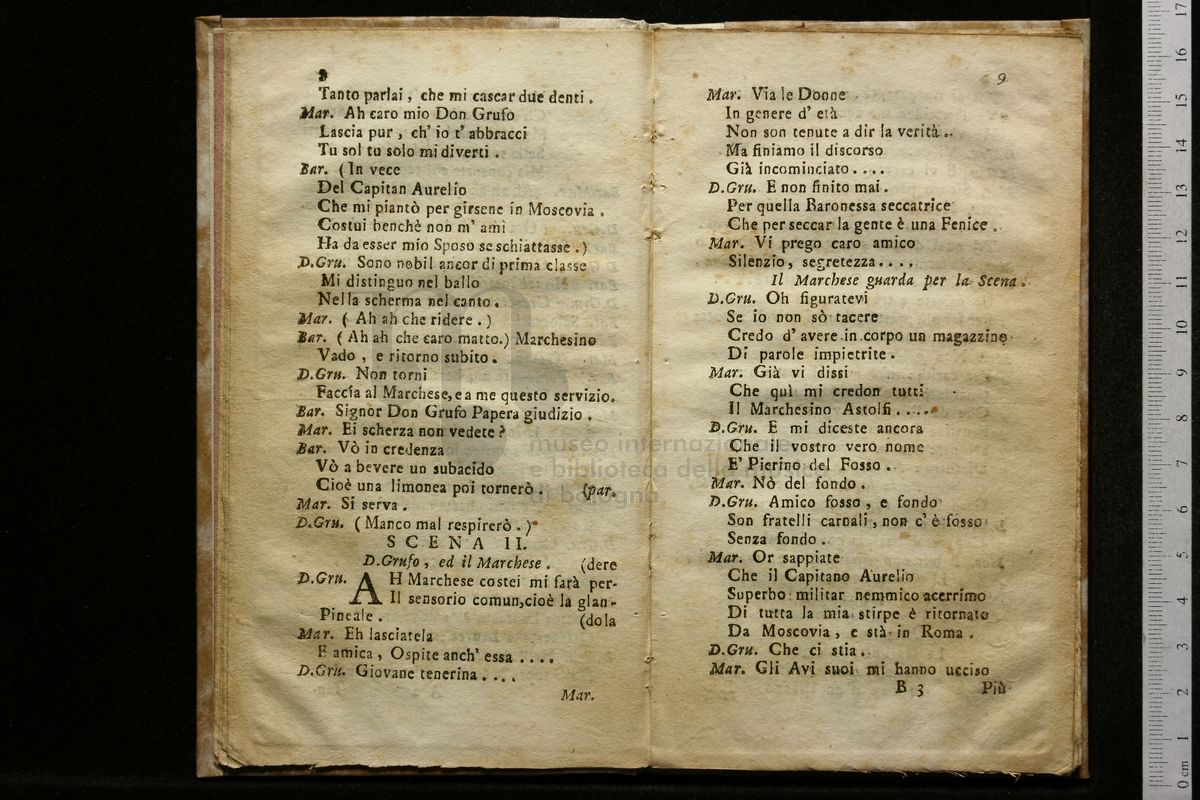 8
Tanto parlai, che mi cascar due denti.
Mar. Ah caro mio Don Grufo
Lascia pur, ch' io t' abbracci
Tu sol tu solo mi diverti.
Bar. (In vece
Del Capitan Aurelio
Che mi piantò per girsene in Moscovia.
Costui benchè non m' ami
Ha da esser mio Sposo se schiattasse.)
D.Gru. Sono nobil ancor di prima classe
Mi distinguo nel ballo
Nella scherma nel canto.
Mar. (Ah ah che ridere.)
Bar. (Ah ah che caro matto.) Marchesino
Vado, e ritorno subito.
D.Gru. Non torni
Faccia al Marchese, e a me questo servizio.
Bar. Signor Don Grufo Papera giudizio.
Mar. Ei scherza non vedete?
Bar. Vò in credenza
Vò a bevere un subacido
Cioè una limonea poi tornerò. (par.
Mar. Si serva.
D.Gru. (Manco mal respirerò.)
SCENA II.
D.Grufo, ed il Marchese. (dere
D.Gru. AH Marchese costei mi farà per-
Il sensorio comun, cioè la glan-
Pineale. (dola
Mar. Eh lasciatela
E amica, Ospite anch' essa ....
D.Gru. Giovane tenerina ....
Mar.
9
Mar. Via le Donne
In genere d' età
Non son tenute a dir la verità..
Ma finiamo il discorso
Già incominciato ....
D.Gru. E non finito mai.
Per quella Baronessa seccatrice
Che per seccar la gente è una Fenice.
Mar. Vi prego caro amico
Silenzio, segretezza ....
Il Marchese guarda per la Scena.
D.Gru. Oh figuratevi
Se io non sò tacere
Credo d' avere in corpo un magazzino
Di parole impietrite.
Mar. Già vi dissi
Che quì mi credon tutti
Il Marchesino Astolfi ....
D.Gru. E mi diceste ancora
Che il vostro vero nome
E' Pierino del Fosso.
Mar. Nò del fondo.
D.Gru. Amico fosso, e fondo
Son fratelli carnali, non c' è fosso
Senza fondo.
Mar. Or sappiate
Che il Capitano Aurelio
Superbo militar nemmico acerrimo
Di tutta la mia stirpe è ritornato
Da Moscovia, e stà in Roma.
D.Gru. Che ci stia.
Mar. Gli Avi suoi mi hanno ucciso
B 3 Più
museo internazionale
e biblioteca della musica
di bologna
17
16
15
14
13
12
11
10
9
8
7
6
5
4
3
2
1
0 cm